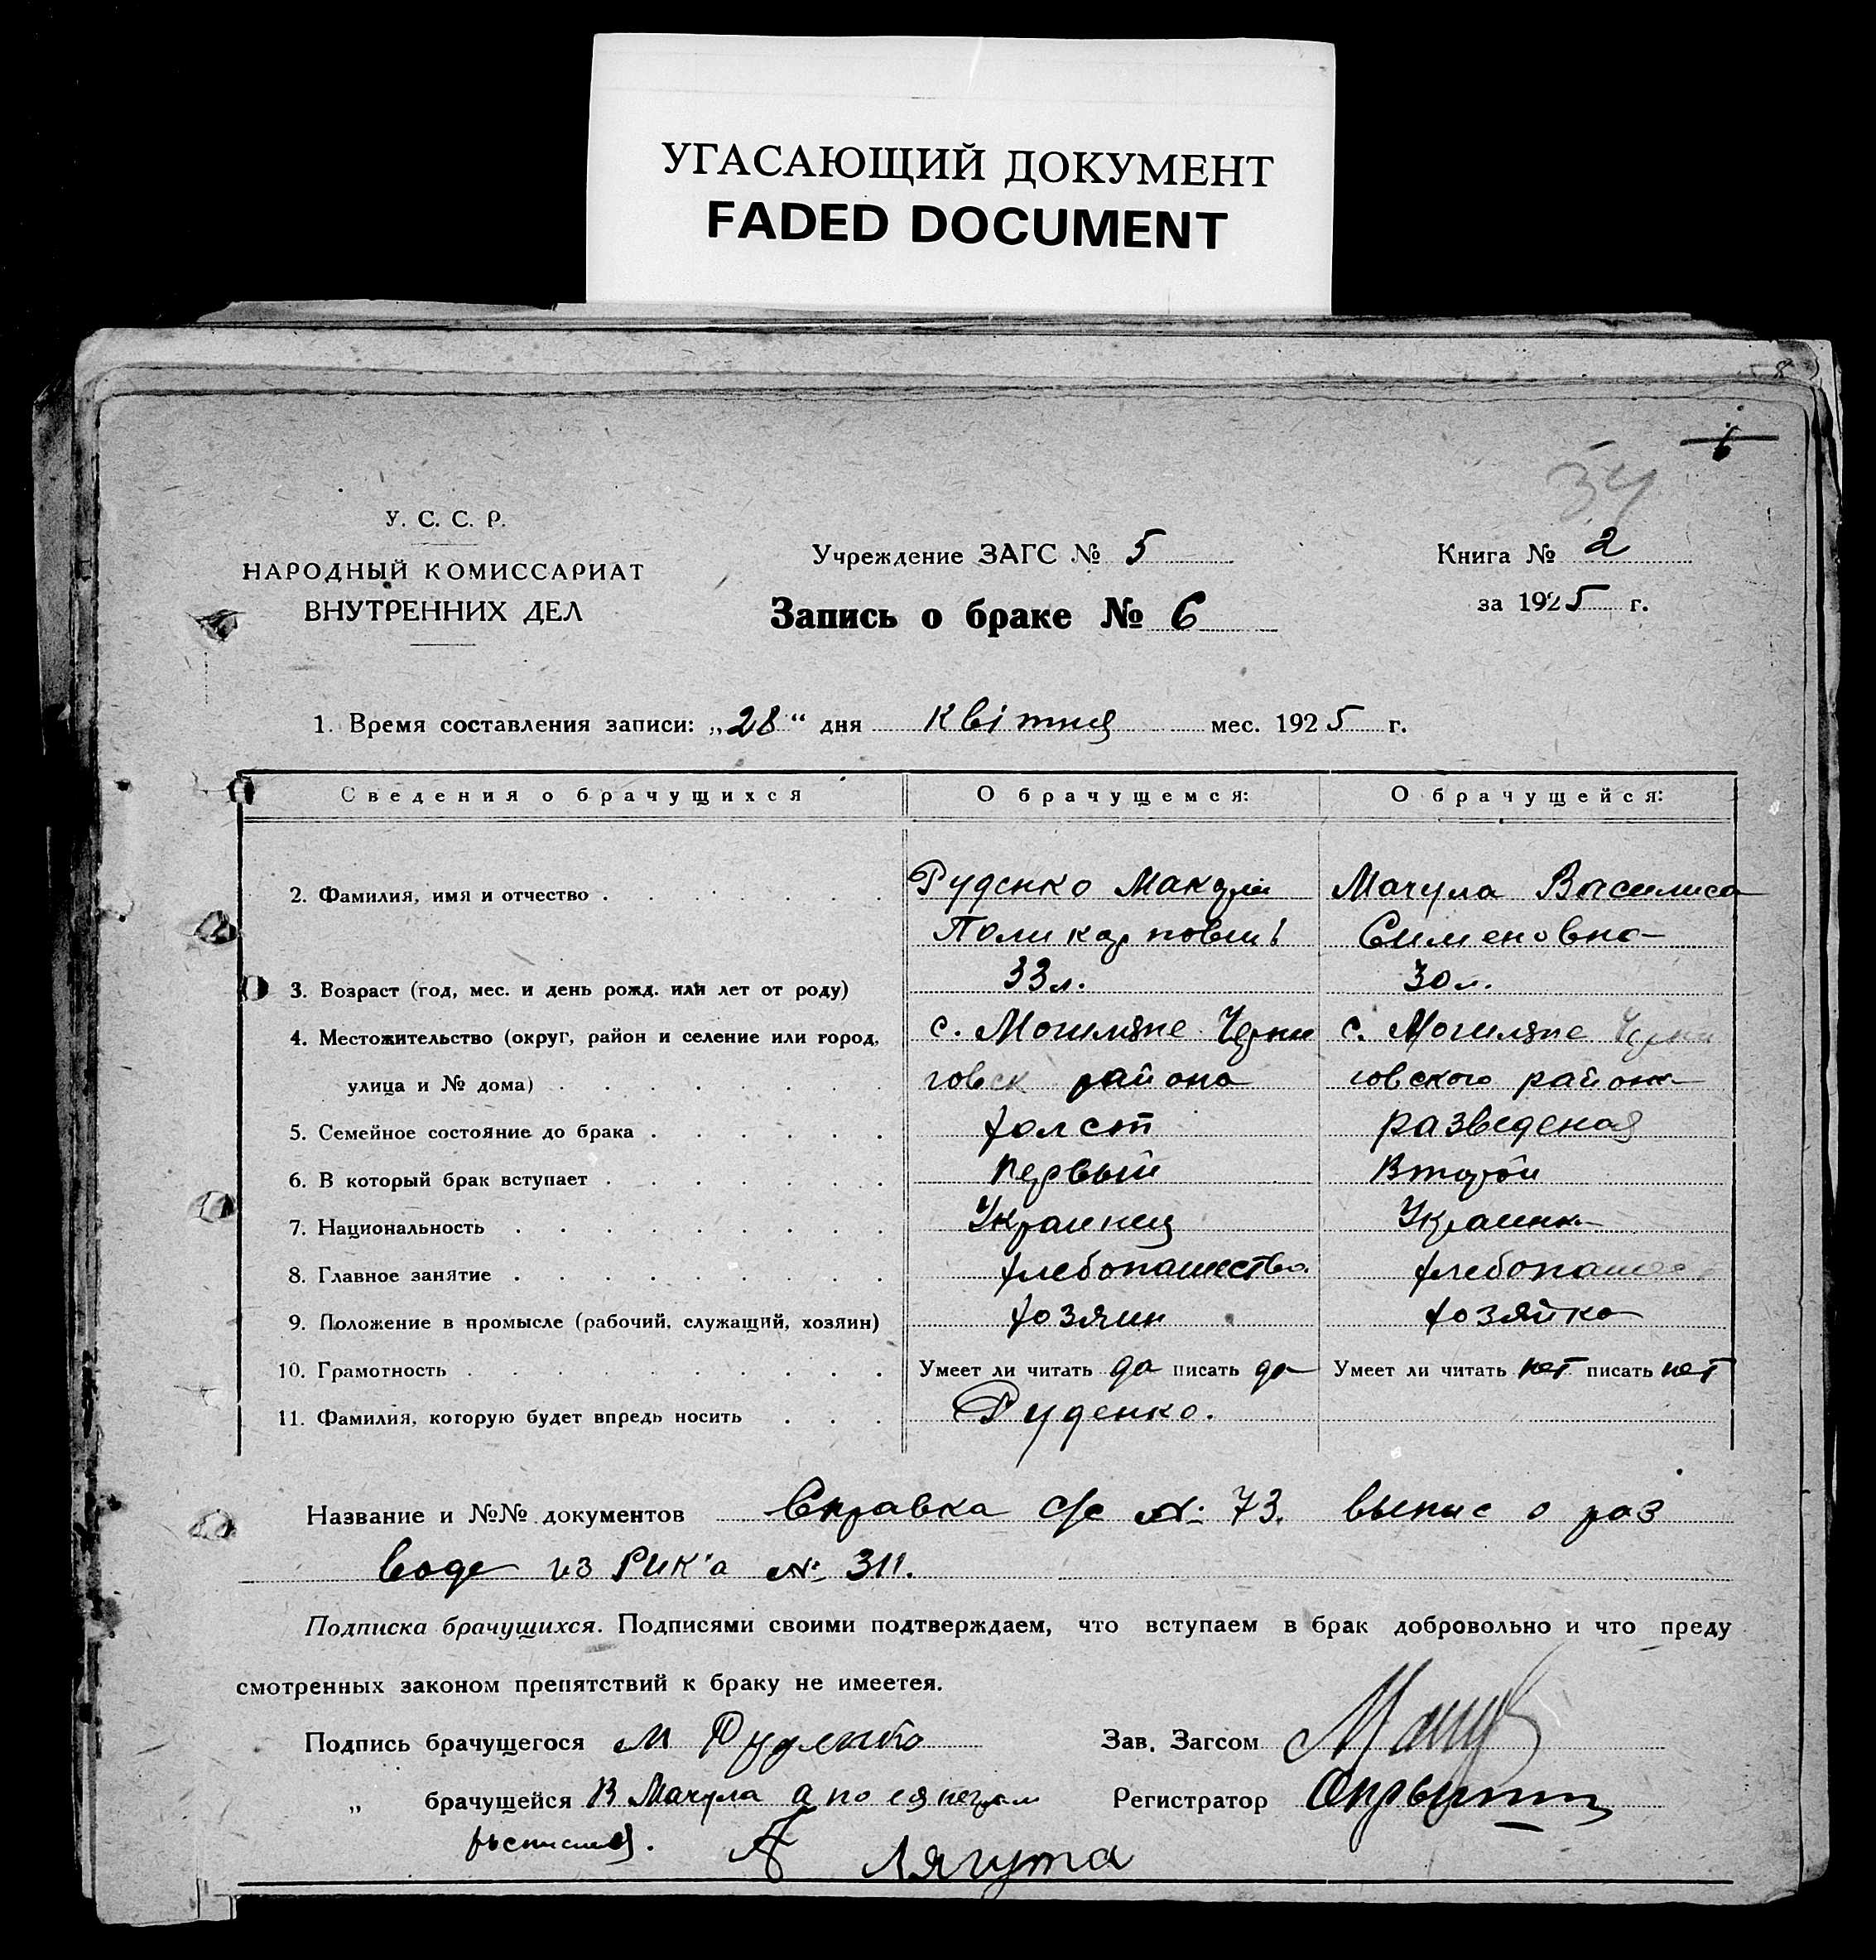 УГАСАЮЩИЙ ДОКУМЕНТ
FADED DOCUMENT
8
6
34
У. С. С. Р.
НАРОДНЫЙ КОМИССАРИАТ
ВНУТРЕННИХ ДЕЛ
Учреждение ЗАГС № 5
Запись о браке № 6
Книга № 2
за 1925 г.
1. Время составления записи: „28“ дня квітня мес. 1925 г.
Сведения о брачущихся О брачущемся: О брачущейся:
2. Фамилия, имя и отчество Руденко Макарий Мачула Василиса
Поликарпович Сименовна
3. Возраст (год, мес. и день рожд. или лет от роду) 33 л. 30 л.
4. Местожительство (округ, район и селение или город, с. Могиляне Черни с. Могиляне Черни
улица и № дома) говск района говского района
5. Семейное состояние до брака холст разведеная
6. В который брак вступает первый Второй
7. Национальность Украинец Украинка
8. Главное занятие хлебопашество хлебопашес
9. Положение в промысле (рабочий, служащий, хозяин) хозяин хозяйка
10. Грамотность Умеет ли читать да писать да Умеет ли читать нет писать нет
11. Фамилия, которую будет впредь носить Руденко.
Название и №№ документов Справка с/с № 73. выпис о раз
воде из РИК'а № 311.
Подписка брачущихся. Подписями своими подтверждаем, что вступаем в брак добровольно и что преду
смотренных законом препятствий к браку не имеетея.
Подпись брачущегося М Руденко Зав. Загсом
„ брачущейся В Мачула а по Регистратор
Лягута